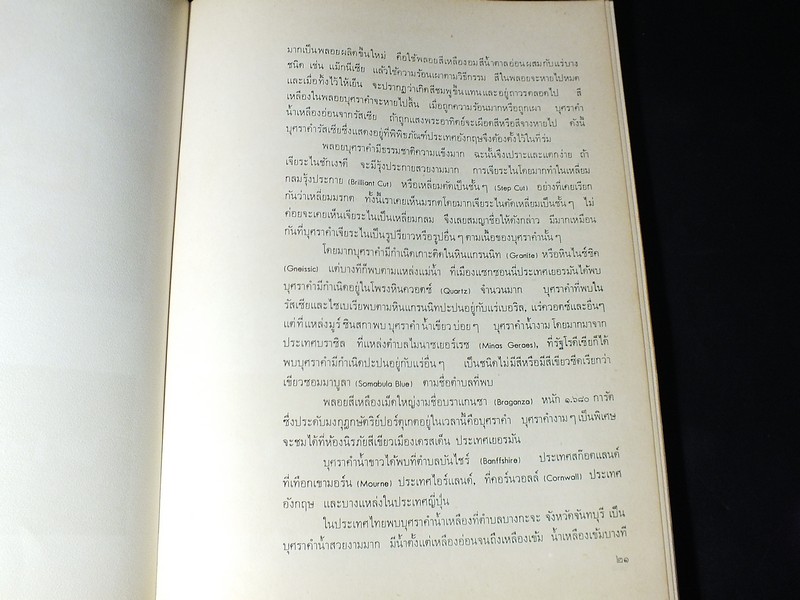 มากเป็นพลอยผลิตขึ้นใหม่ คือใช้พลอยสีเหลืองอมสีน้ำตาลอ่อนผสมกับแร่บาง
ชนิด เช่น แม๊กนีเซีย แล้วใช้ความร้อนเผาตามวิธีกรรม สีในพลอยจะหายไปหมด
และเมื่อทิ้งไว้ให้เย็น จะปรากฏว่าเกิดสีชมพูขึ้นแทนและอยู่ถาวรตลอดไป สี
เหลืองในพลอยบุศราคำจะหายไปสิ้น เมื่อถูกความร้อนมากหรือถูกเผา บุศราคำ
น้ำเหลืองอ่อนจากรัสเซีย ถ้าถูกแสงพระอาทิตย์จะเผือดสีหรือสีจางหายไป ดังนี้
บุศราคำรัสเซียซึ่งแสดงอยู่ที่พิพิธภัณฑ์ประเทศอังกฤษจึงต้องตั้งไว้ในที่ร่ม
พลอยบุศราคำมีธรรมชาติความแข็งมาก ฉะนั้นจึงเปราะและแตกง่าย ถ้า
เจียระไนชักเงาดี จะมีรุ้งประกายสวยงามมาก การเจียระไนโดยมากทำในเหลี่ยม
กลมรุ้งประกาย (Brilliant Cut) หรือเหลี่ยมตัดเป็นชั้นๆ (Step Cut) อย่างที่เคยเรียก
กันว่าเหลี่ยมมรกต ทั้งนี้เราเคยเห็นมรกตโดยมากเจียระไนตัดเหลี่ยมเป็นชั้นๆ ไม่
ค่อยจะเคยเห็นเจียระไนเป็นเหลี่ยมกลม จึงเลยสมญาชื่อให้ดังกล่าว มีมากเหมือน
กันที่บุศราคำเจียระไนเป็นรูปรียาวหรือรูปอื่นๆ ตามเนื้อของบุศราคำนั้นๆ
โดยมากบุศราคำมีกำเนิดเกาะติดในหินแกรนนิท (Granite) หรือหินไนซ์ซิค
(Gneissic) แต่บางทีก็พบตามแหล่งแม่น้ำ ที่เมืองแซกซอนนีประเทศเยอรมันได้พบ
บุศราคำมีกำเนิดอยู่ในโพรงหินควอตซ์ (Quartz) จำนวนมาก บุศราคำที่พบใน
รัสเซียและไซเบเรียพบตามหินแกรนนิทปะปนอยู่กับแร่เบอริล, แร่ควอตซ์และอื่นๆ
แต่ที่แหล่งมูร์ซินสกาพบบุศราคำน้ำเขียวบ่อยๆ บุศราคำน้ำงามโดยมากมาจาก
ประเทศบราซิล ที่แหล่งตำบลไมนาซเยอร์เรซ (Minas Geraes), ที่รัฐโรดีเซียก็ได้
พบบุศราคำมีกำเนิดปะปนอยู่กับแร่อื่นๆ เป็นชนิดไม่มีสีหรือมีสีเขียวซีดเรียกว่า
เขียวซอมมาบูลา (Somabula Blue) ตามชื่อตำบลที่พบ
พลอยสีเหลืองเม็ดใหญ่งามชื่อบราแกนซา (Braganza) หนัก ๑.๖๘๐ การัต
ซึ่งประดับมงกุฎกษัตริย์ปอร์ตุเกตอยู่ในเวลานี้คือบุศราคำ บุศราคำงามๆ เป็นพิเศษ
จะชมได้ที่ห้องนิรภัยสีเขียวเมืองเดรสเด็น ประเทศเยอรมัน
บุศราคำน้ำขาวได้พบที่ตำบลบันไชร์ (Banffshire) ประเทศสก๊อตแลนด์
ที่เทือกเขามอร์น (Mourne) ประเทศไอร์แลนด์, ที่คอร์นวอลล์ (Cornwall) ประเทศ
อังกฤษ และบางแหล่งในประเทศญี่ปุ่น
ในประเทศไทยพบบุศราคำน้ำเหลืองที่ตำบลบางกะจะ จังหวัดจันทบุรี เป็น
บุศราคำน้ำสวยงามมาก มีน้ำตั้งแต่เหลืองอ่อนจนถึงเหลืองเข้ม น้ำเหลืองเข้มบางที
๒๑